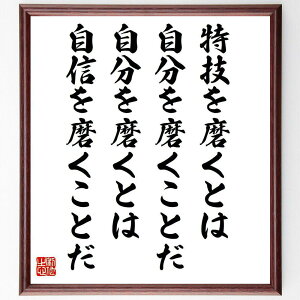 特技を磨くとは
自分を磨くことだ
自分を磨くとは
自信を磨くことだ